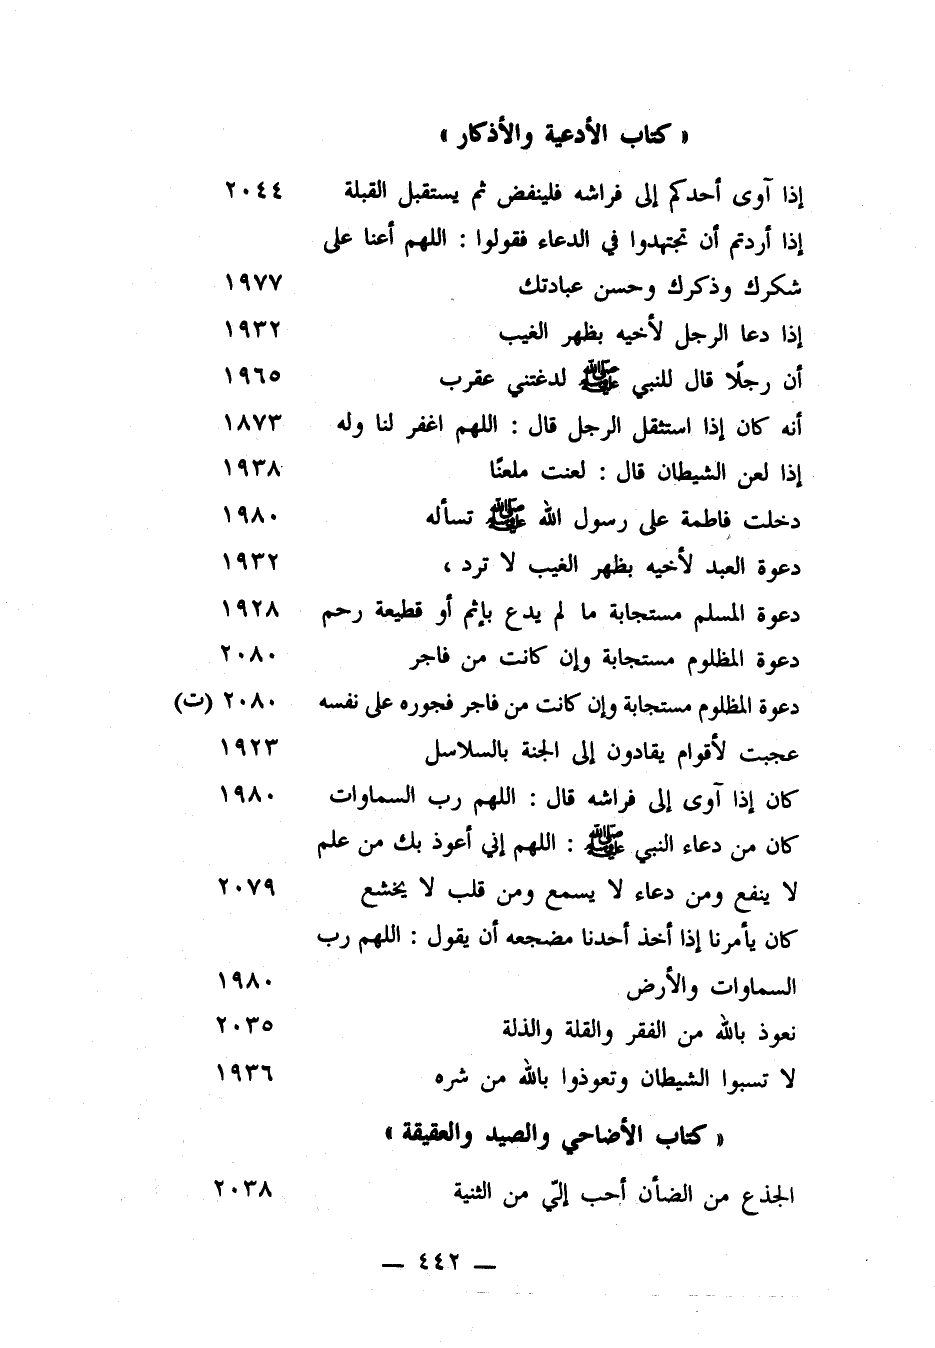 « كتاب الأدعية والأذكار »
إذا آوى أحدكم إلى فراشه فلينفض ثم يستقبل القبلة ٢٠٤٤
إذا أردتم أن تجتهدوا في الدعاء فقولوا : اللهم أعنا على
شكرك وذكرك وحسن عبادتك ١٩٧٧
إذا دعا الرجل لأخيه بظهر الغيب ١٩٣٢
أن رجلًا قال للنبي ﷺ لدغتني عقرب ١٩٦٥
أنه كان إذا استثقل الرجل قال : اللهم اغفر لنا وله ١٨٧٣
إذا لعن الشيطان قال : لعنت ملعنًا ١٩٣٨
دخلت فاطمة على رسول الله ﷺ تسأله ١٩٨٠
دعوة العبد لأخيه بظهر الغيب لا ترد ، ١٩٣٢
دعوة المسلم مستجابة ما لم يدع بإثم أو قطيعة رحم ١٩٢٨
دعوة المظلوم مستجابة وإن كانت من فاجر ٢٠٨٠
دعوة المظلوم مستجابة وإن كانت من فاجر فجوره على نفسه ٢٠٨٠ (ت)
عجبت لأقوام يقادون إلى الجنة بالسلاسل ١٩٢٣
كان إذا آوى إلى فراشه قال : اللهم رب السماوات ١٩٨٠
كان من دعاء النبي ﷺ : اللهم إني أعوذ بك من علم
لا ينفع ومن دعاء لا يسمع ومن قلب لا يخشع ٢٠٧٩
كان يأمرنا إذا أخذ أحدنا مضجعه أن يقول : اللهم رب
السماوات والأرض ١٩٨٠
نعوذ بالله من الفقر والقلة والذلة ٢٠٣٥
لا تسبوا الشيطان وتعوذوا بالله من شره ١٩٣٦
« كتاب الأضاحي والصيد والعقيقة »
الجذع من الضأن أحب إليّ من الثنية ٢٠٣٨
— ٤٤٢ —